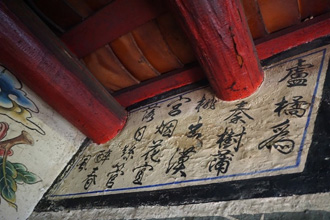 盧橘為
秦樹蒲
桃漢
宮烟花宜
落日絲管